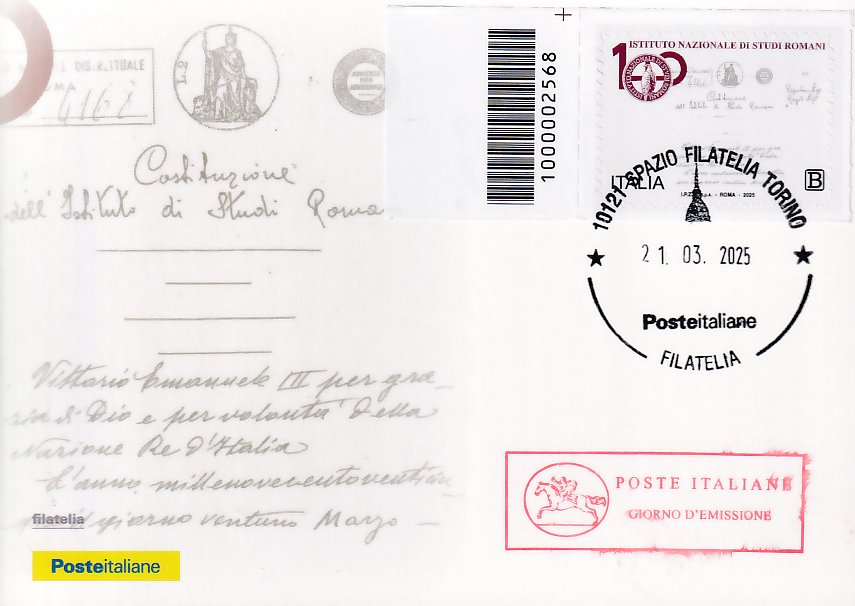 DIS.RETTUALE
4168
L.2
Costituzione
dell'Istituto di Studi Roma
Vittorio Emanuele III per gra_
zia di Dio e per volontà della
Nazione Re d'Italia
L'anno millenovecentoventicin
giorno ventuno Marzo _
filatelia
Posteitaliane
1000002568
100
ISTITUTO NAZIONALE DI STUDI ROMANI
Costituzione
dell'Istituto di Studi Romani
ITALIA
B
ROMA - 2025
10121 SPAZIO FILATELIA TORINO
21. 03. 2025
Posteitaliane
FILATELIA
POSTE ITALIANE
GIORNO D'EMISSIONE